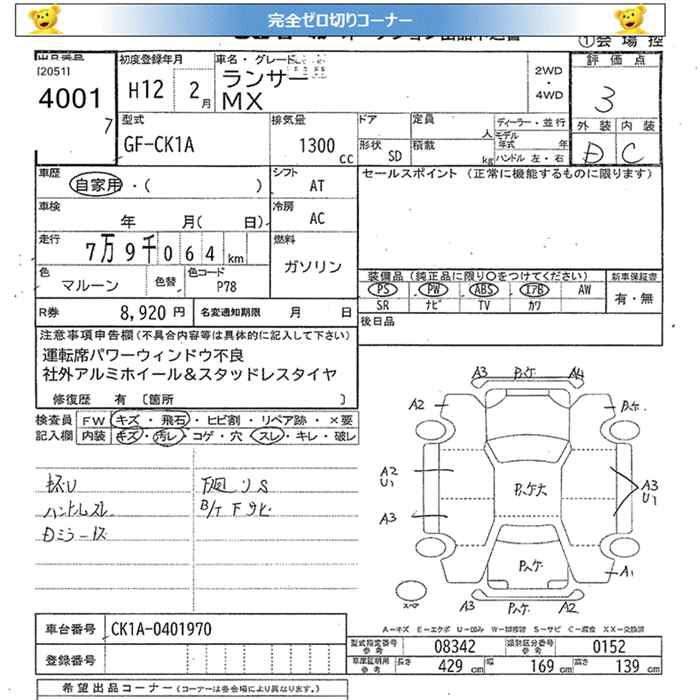 完全ゼロ切りコーナー
①会場控
[2051]
4001
7
初度登録年月
H12 2月
車名・グレード
ランサー
MX
2WD
・
4WD
評価点
3
外装 内装
D C
型式
GF-CK1A
排気量
1300 cc
ドア
定員
人
形状 SD
積載
kg
ディーラー・並行
モデル年式 年
ハンドル 左・右
車歴
自家用・( )
シフト
AT
車検
年 月( 日)
冷房
AC
走行
7万9千064km
燃料
ガソリン
色
マルーン
色替
色コード
P78
セールスポイント (正常に機能するものに限ります)
装備品 (純正品に限り○をつけてください)
新車保証書
PS PW ABS エアB AW
SR ナビ TV カワ
有・無
R券 8,920円
名変通知期限 月 日
後日品
注意事項申告欄(不具合内容等は具体的に記入して下さい)
運転席パワーウィンドウ不良
社外アルミホイール&スタッドレスタイヤ
修復歴 有 [箇所 ]
検査員記入欄
FW キズ・飛石・ヒビ割・リペア跡・×要
内装 キズ・汚レ・コゲ・穴・スレ・キレ・破レ
ハンドルスレ
Dミラーキズ
下廻りS
A3 A4
A2
A2
U1
A3
A3
U1
A1
A3 A2
スペア
A-キズ E-エクボ U-凹み W-補修跡 S-サビ C-腐食 XX-交換済
車台番号 CK1A-0401970
登録番号
型式指定番号 参考 08342
類別区分番号 参考 0152
車庫証明用 参考 長さ 429cm 幅 169cm 高さ 139cm
希望出品コーナー(コーナーは各会場により異なります。)